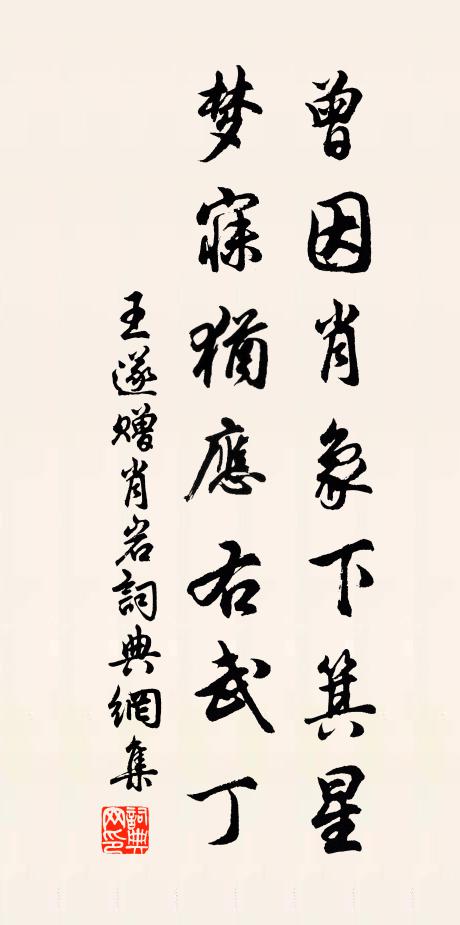 曾因肖象下箕星
梦寐猶應右武丁
王遂贈肖岩詞典網集
詞典网印